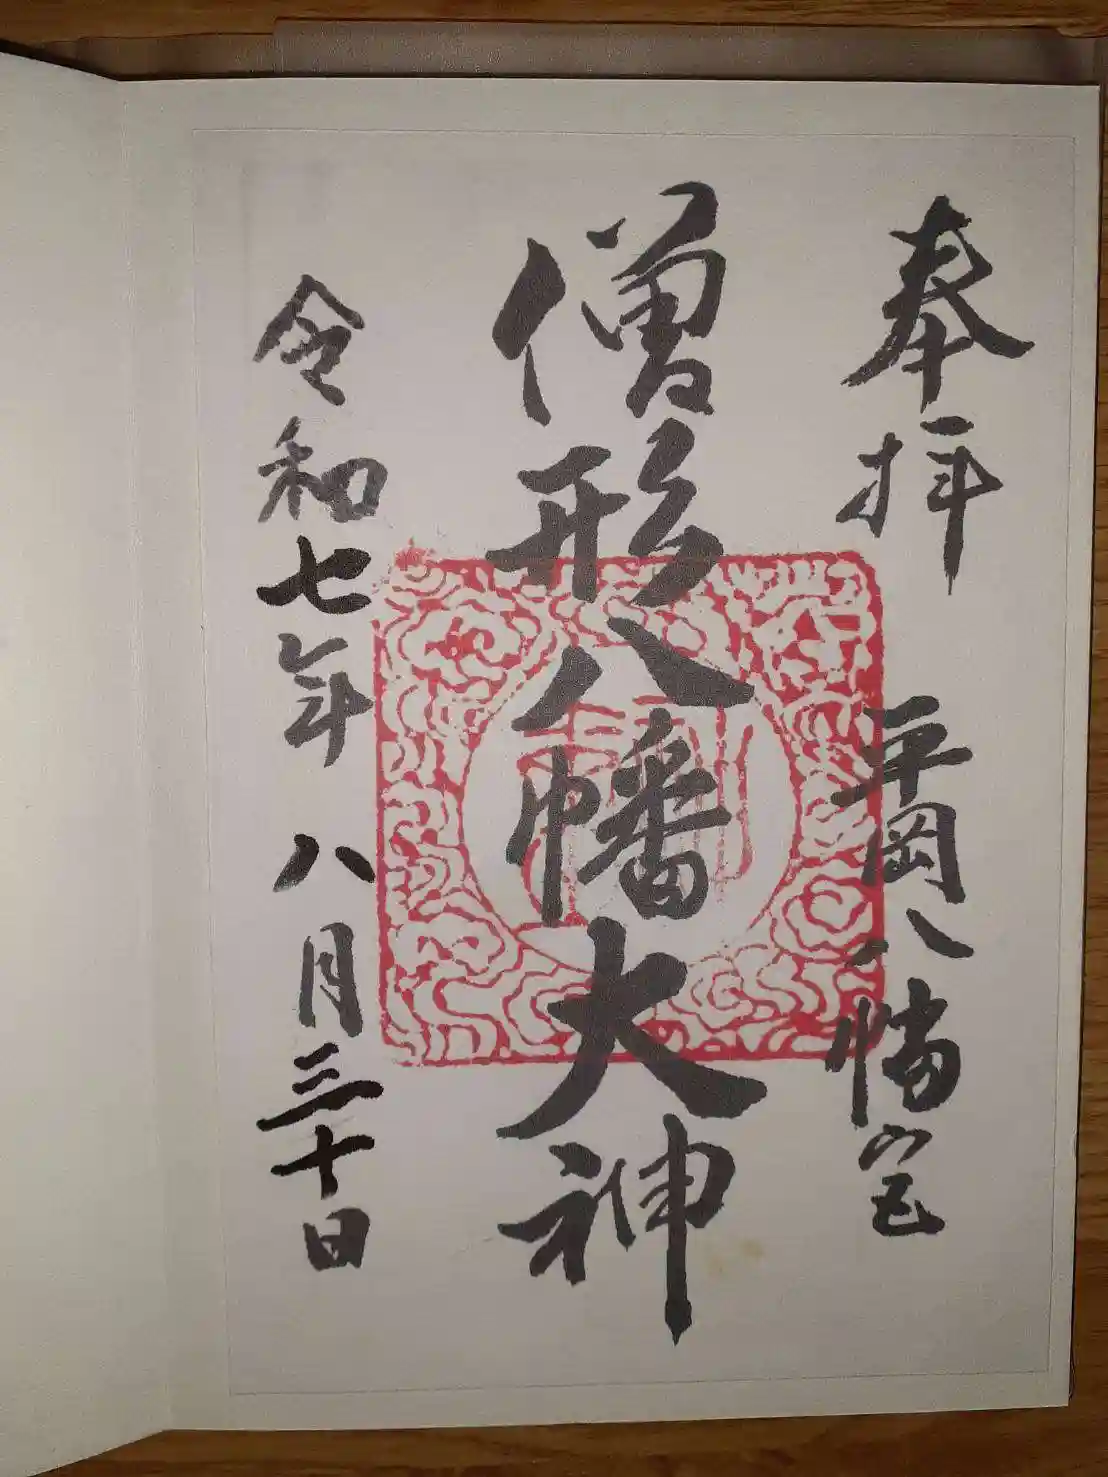 奉拝 平岡八幡宮
僧形八幡大神
令和七年 八月三十日